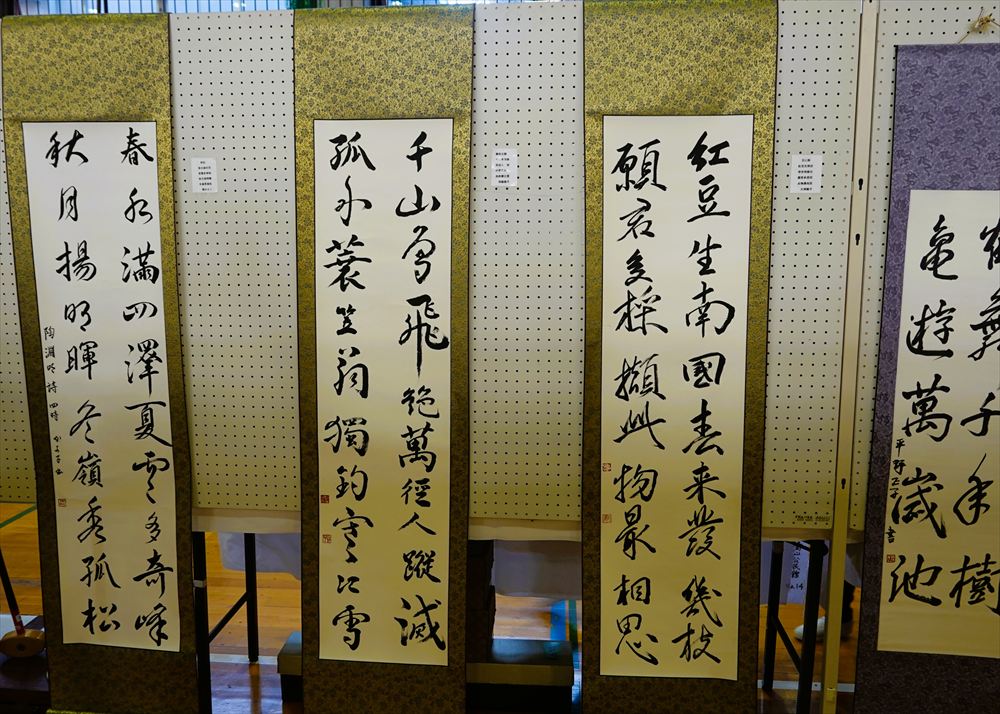 鶴舞千年樹
亀遊萬歳池
紅豆生南國春来發幾枝
願君多採擷此物最相思
千山鳥飛絶萬徑人蹤滅
孤舟蓑笠翁獨釣寒江雪
春水滿四澤夏雲多奇峰
秋月揚明暉冬嶺秀孤松
陶淵明詩四時